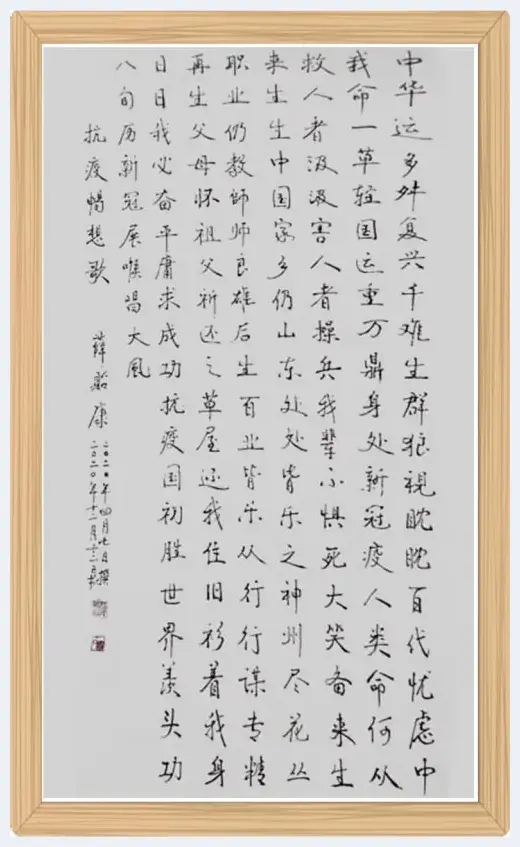 中华运多舛复兴千难生群狼视眈眈百代忧虑中
我命一草轻国运重万鼎身处新冠疫人类命何从
救人者汲汲害人者操兵我辈不惧死大笑备来生
来生生中国家乡仍山东处处皆乐之神州尽花丛
职业仍教师师良雄后生百业皆乐从行行谋专精
再生父母怀祖父祈还之草屋还我住旧衫着我身
日日我必奋平庸求成功抗疫国初胜世界羡头功
八旬历新冠展喉唱大风
抗疫畅想歌
薛 康
二〇二〇年四月 日撰
二〇二〇年十一月十二